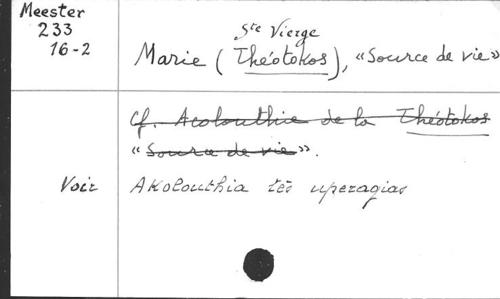 Meester
233
16-2
Ste Vierge
Marie (Théotokos), «Source de vie»
Cf. Acolouthie de la Théotokos
«Source de vie».
Voir Akolouthia tēs uperagias